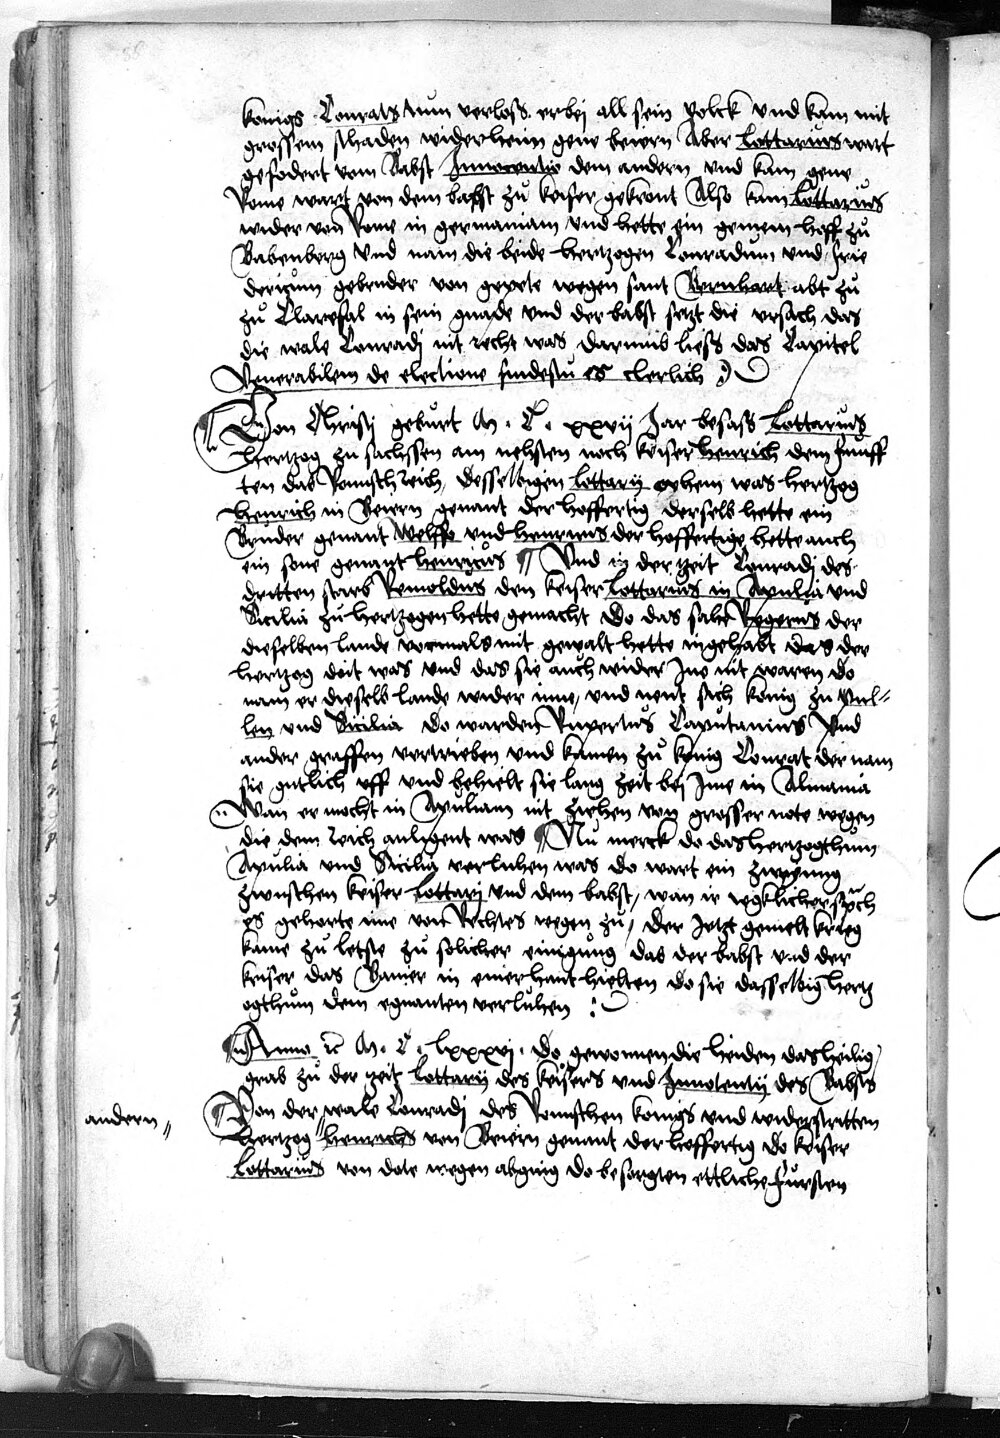 konigs Conrats tum verloss erbej all sein volck vnd kam mit
grossem schaden widerheim gene beiern Aber Lottarius wart
gefodert vom Babst Innocentio dem andern vnd kam gene
Rome wart von dem babst zu keiser gekront Also kam Lottarius
wider von Rome in germaniam vnd hette ein gemein hoff zu
Babenberg vnd nam die beide hertzogen Conradum vnd frie
dericum gebruder von gepete wegen sant Bernhart abt zu
zu Clarefal in sein gnade vnd der babst setzt die vrsach das
die wale Conradj nit recht was darumb liess das Capitel
Venerabilem de electione findestu es clerlich
Von Christj geburt M. C. xxvij Jar besass Lottarius
hertzog zu sachssen am nehsten noch keiser Henrich dem funff
ten das Romisch Reich, desselbigen lottarij ohem was hertzog
henrich in Beiern genant der hoffertig derselb hette ein
Bruder genant Welffo vnd henricus der hoffertige hette auch
ein sone genant henricus Vnd in der zeit Conradj des
dritten starb Remoldus den keiser lottarius in Apulia vnd
Sicilia zu hertzogen hette gemacht Do das sahe Rogerius der
dieselben lande vormals mit gewalt hette ingehabt das der
hertzog doit was vnd das sie auch wider Ine nit waren do
nam er dieselb lande wider inne, vnd nent sich konig zu pul-
len vnd Sicilia do warden Rupertus Caputanius Vnd
ander graffen vertrieben vnd kamen zu konig Conrat der nam
sie gutlich vff vnd behielt sie lang zeit bej Ime in Almania
Wan er mocht in Apuliam nit ziehen von grosser note wegen
die dem reich anligent was Nu merck do das hertzogthum
Apulia vnd Sicilia verluhen was do wart ein zweyung
zwuschen keiser lottarj vnd dem babst, wan ir ygklicher sprch
es gehorte ime von Rechtes wegen zu, der itzt gemelt krieg
kame zu letste zu solicher einigung das der babst vnd der
keiser das Banier in einer hant hielten do sie dasselbig hertz
ogthum dem egnanten verluhen
Anno rc M. C. lxxxvj. do gewonnen die heiden das heilig
grab zu der zeit lottarij des keisers vnd Innocentij des Babsts
andern
Von der wale Conradj des Romischen konigs vnd widerstritten
hertzog henrichs von Beiern genant der hoffertig do keiser
lottarius von dote wegen abging do besorgten ettliche fursten